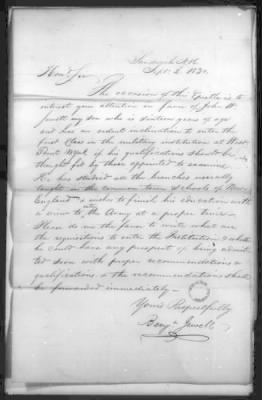 Sandwich N.H.
Hond. Sir,
The occasion of this Epistle is to
interest your attention in favor of John W.
Jewett my son who is sixteen years of age
and has an ardent inclination to enter the
first Class in the military institution at West
Point N York if his qualifications should be
thought fit by those appointed to examine
He has studied all the branches usually
taught in the common town Schools of New
England & wishes to finish his education with
a view to enter the Army at a proper time
Please do me the favor to write what are
the requisitions to enter the Institution & whether
he could have any prospect of being admit
ted soon with proper recommendations &
qualifications & the recommendations shall
be forwarded immediately
Yours Respectfully
Benjn. Jewett